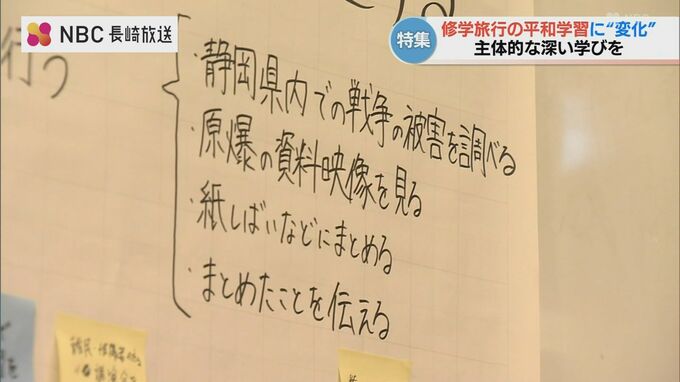 NBC 長崎放送
特集
修学旅行の平和学習に“変化”
主体的な深い学びを
行う
・静岡県内での戦争の被害を調べる
・原爆の資料映像を見る
・紙しばいなどにまとめる
・まとめたことを伝える